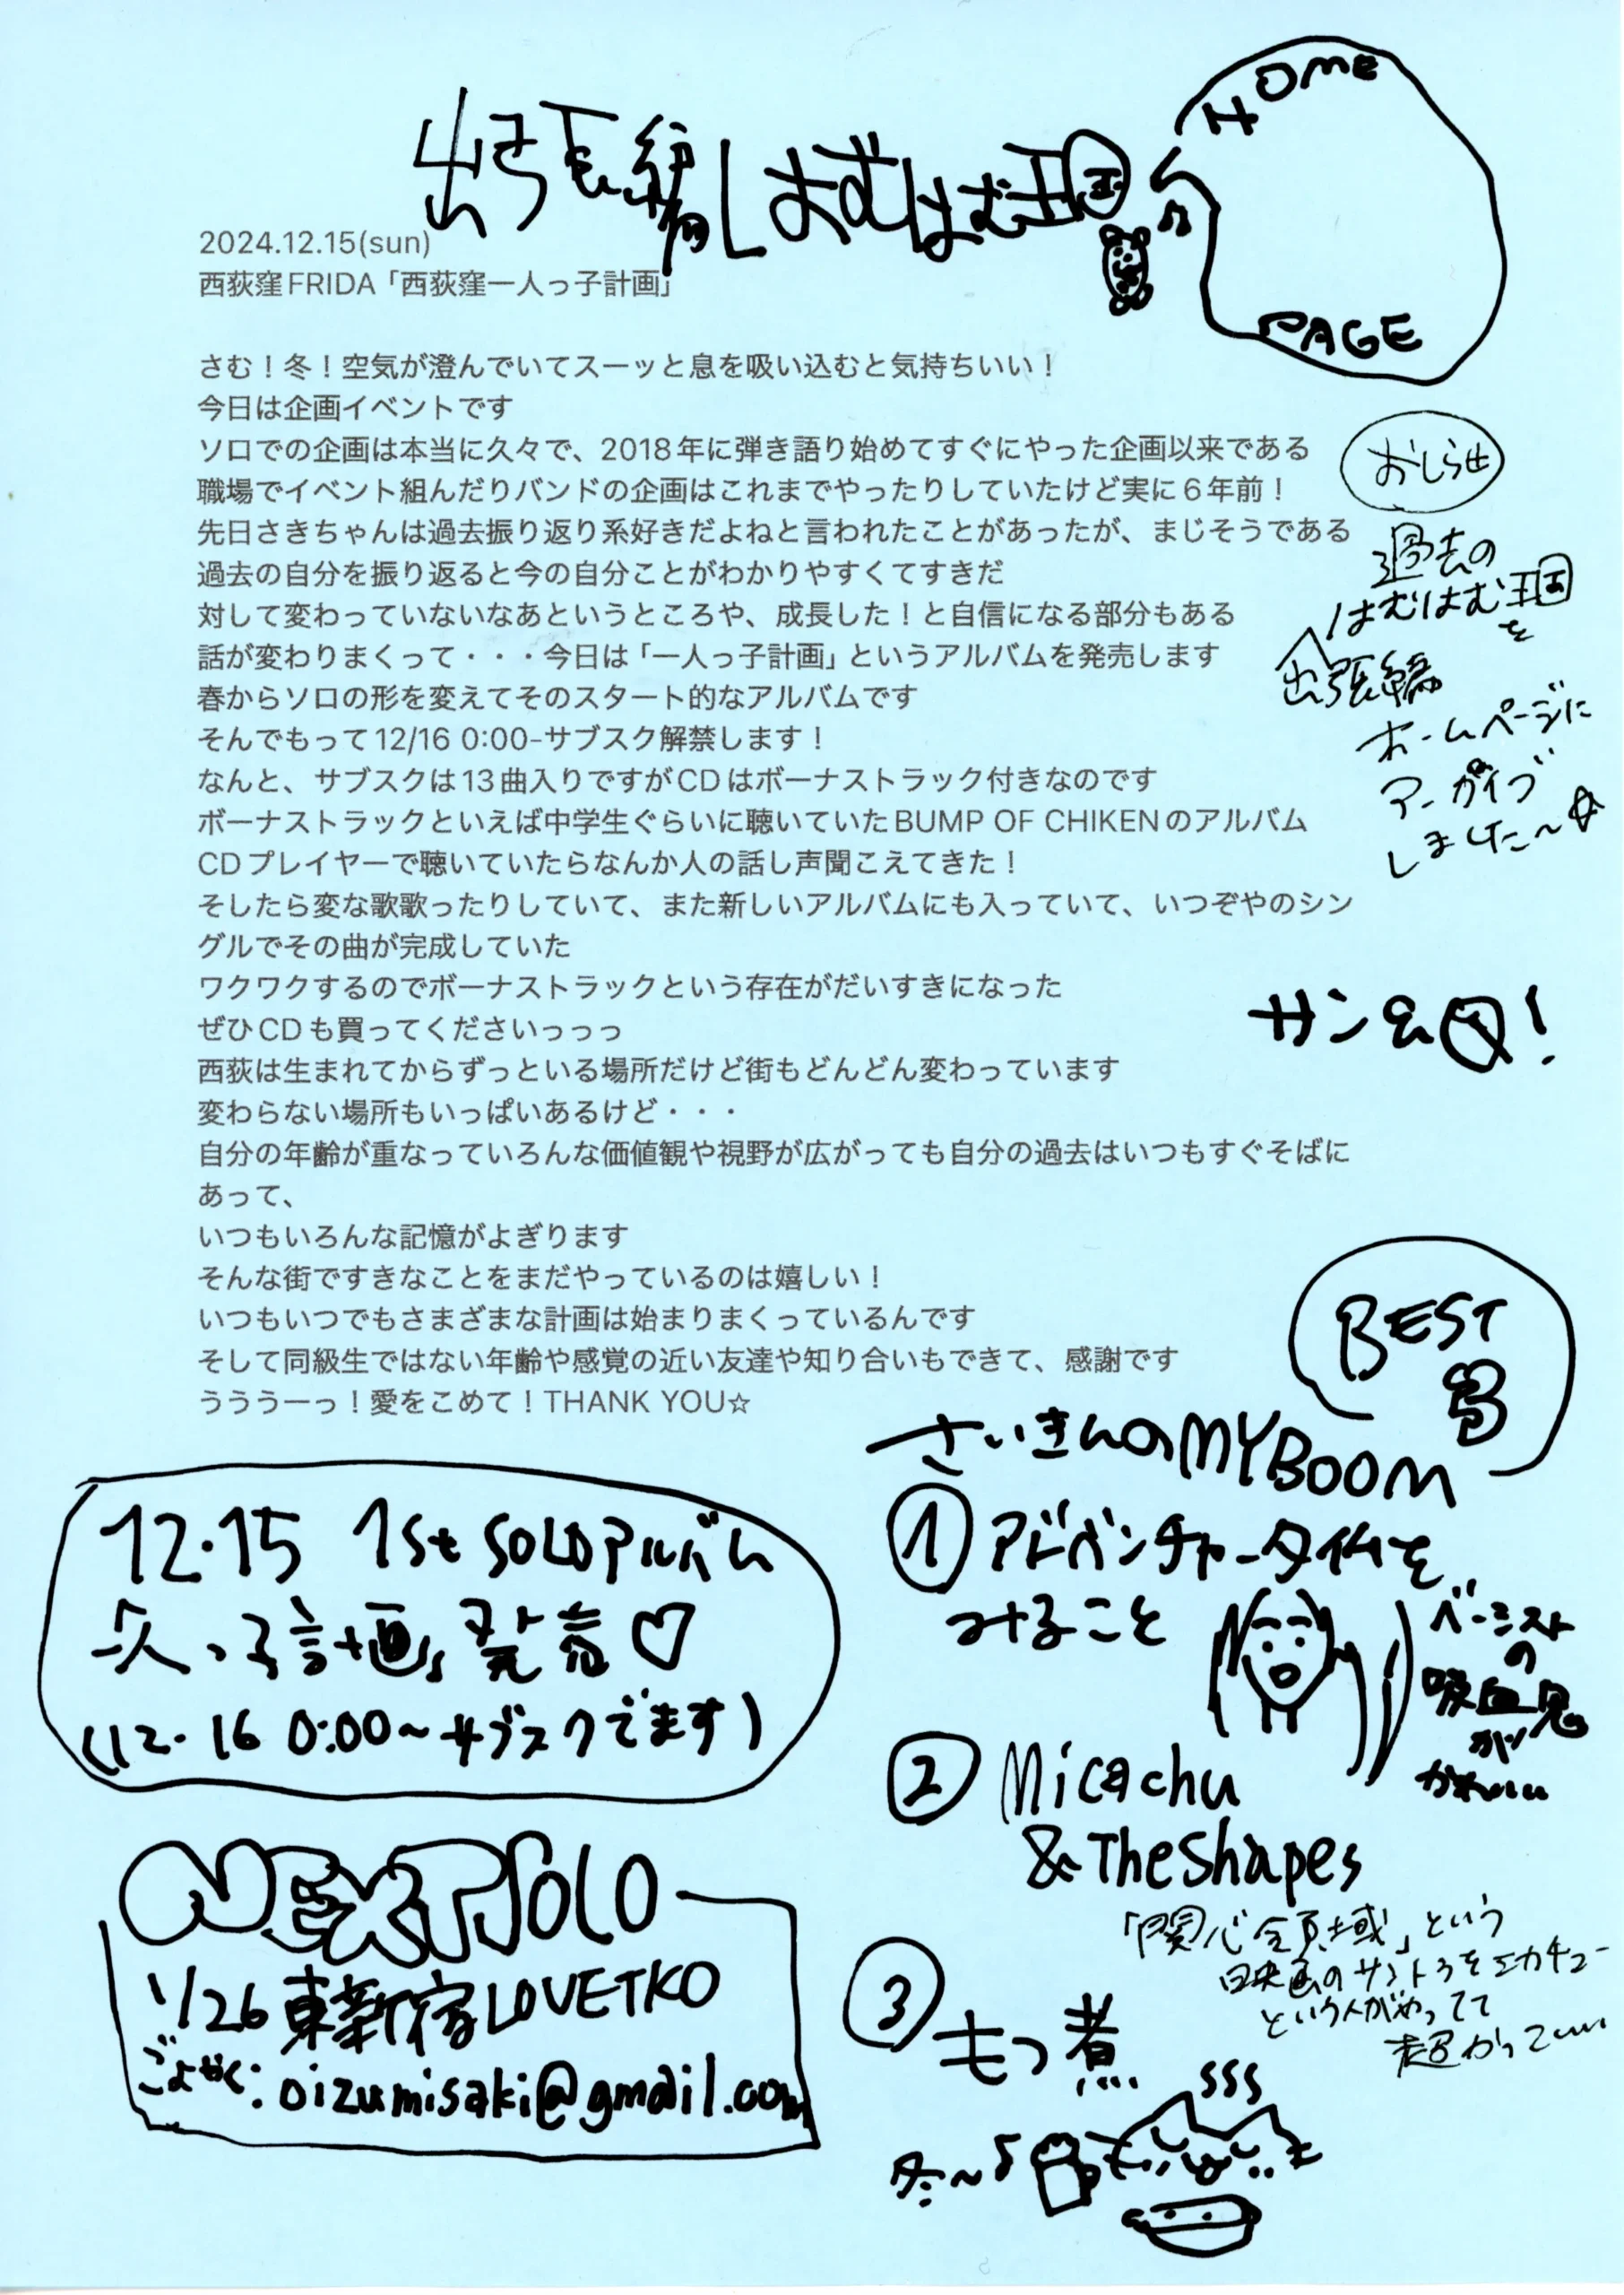 出張編しおむはむ王国
HOME
PAGE
2024.12.15(sun)
西荻窪FRIDA「西荻窪一人っ子計画」
さむ！冬！空気が澄んでいてスーッと息を吸い込むと気持ちいい！
今日は企画イベントです
ソロでの企画は本当に久々で、2018年に弾き語り始めてすぐにやった企画以来である
職場でイベント組んだりバンドの企画はこれまでやったりしていたけど実に6年前！
先日さきちゃんは過去振り返り系好きだよねと言われたことがあったが、まじそうである
過去の自分を振り返ると今の自分ことがわかりやすくてすきだ
対して変わっていないなあというところや、成長した！と自信になる部分もある
話が変わりまくって・・・今日は「一人っ子計画」というアルバムを発売します
春からソロの形を変えてそのスタート的なアルバムです
そんでもって12/16 0:00-サブスク解禁します！
なんと、サブスクは13曲入りですがCDはボーナストラック付きなのです
ボーナストラックといえば中学生ぐらいに聴いていたBUMP OF CHIKENのアルバム
CDプレイヤーで聴いていたらなんか人の話し声聞こえてきた！
そしたら変な歌歌ったりしていて、また新しいアルバムにも入っていて、いつぞやのシン
グルでその曲が完成していた
ワクワクするのでボーナストラックという存在がだいすきになった
ぜひCDも買ってくださいっっっ
西荻は生まれてからずっといる場所だけど街もどんどん変わっています
変わらない場所もいっぱいあるけど・・・
自分の年齢が重なっていろんな価値観や視野が広がっても自分の過去はいつもすぐそばに
あって、
いつもいろんな記憶がよぎります
そんな街ですきなことをまだやっているのは嬉しい！
いつもいつでもさまざまな計画は始まりまくっているんです
そして同級生ではない年齢や感覚の近い友達や知り合いもできて、感謝です
うううーっ！愛をこめて！THANK YOU☆
おしらせ
過去の
はむはむ王国
を
出張編
ホームページに
アーカイブ
しました〜☆
サンキュー！
BEST
3
さいきんのMYBOOM
① アドベンチャータイムを
みること
ベーシスト
の
吸血鬼
が
かわいい
② Micachu
&TheShapes
「関心領域」という
映画のサントラをミカチュー
という人がやってて
超かっこいい
③ もつ煮
sss
冬〜♪
12.15 1st SOLOアルバム
一人っ子計画」発売♡
(12.16 0:00〜サブスクでます)
NEXT SOLO
1/26 東新宿LOVETKO
ごよやく: oizumisaki@gmail.com